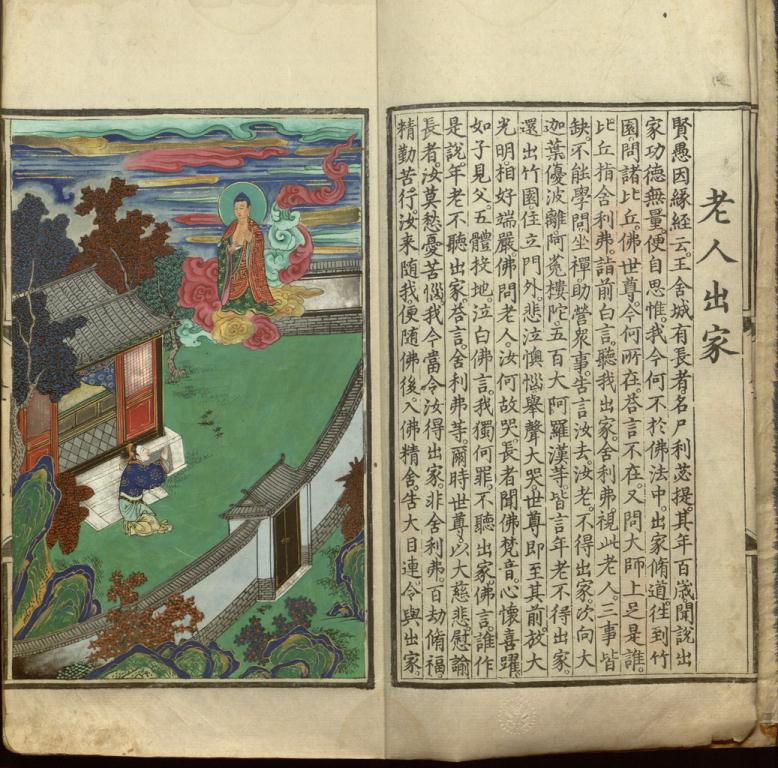 老人出家
賢愚因緣經云。王舍城有長者。名尸利苾提。其年百歲。聞說出
家功德無量。便自思惟。我今何不於佛法中。出家脩道。徃到竹
園。問諸比丘。佛世尊。今何所在。荅言不在。又問大師上足是誰。
比丘指舍利弗。詣前白言。聽我出家。舍利弗。視此老人。三事皆
缺。不能學問。坐禪助營眾事。告言汝去。汝老。不得出家。次向大
迦葉。優波離。阿㝹樓陀。五百大阿羅漢等。皆言年老不得出家。
還出竹園。住立門外。悲泣懊惱。舉聲大哭。世尊即至其前。放大
光明。相好端嚴。佛問老人。汝何故哭。長者聞佛梵音。心懷喜躍。
如子見父。五體投地。泣白佛言。我獨何罪。不聽出家。佛言。誰作
是說。年老不聽出家。荅言。舍利弗等。爾時世尊。以大慈悲慰諭
長者。汝莫愁憂苦惱。我今當令汝得出家。非舍利弗。百劫脩福。
精勤苦行。汝来隨我。便隨佛後。入佛精舍。告大目連。令與出家。